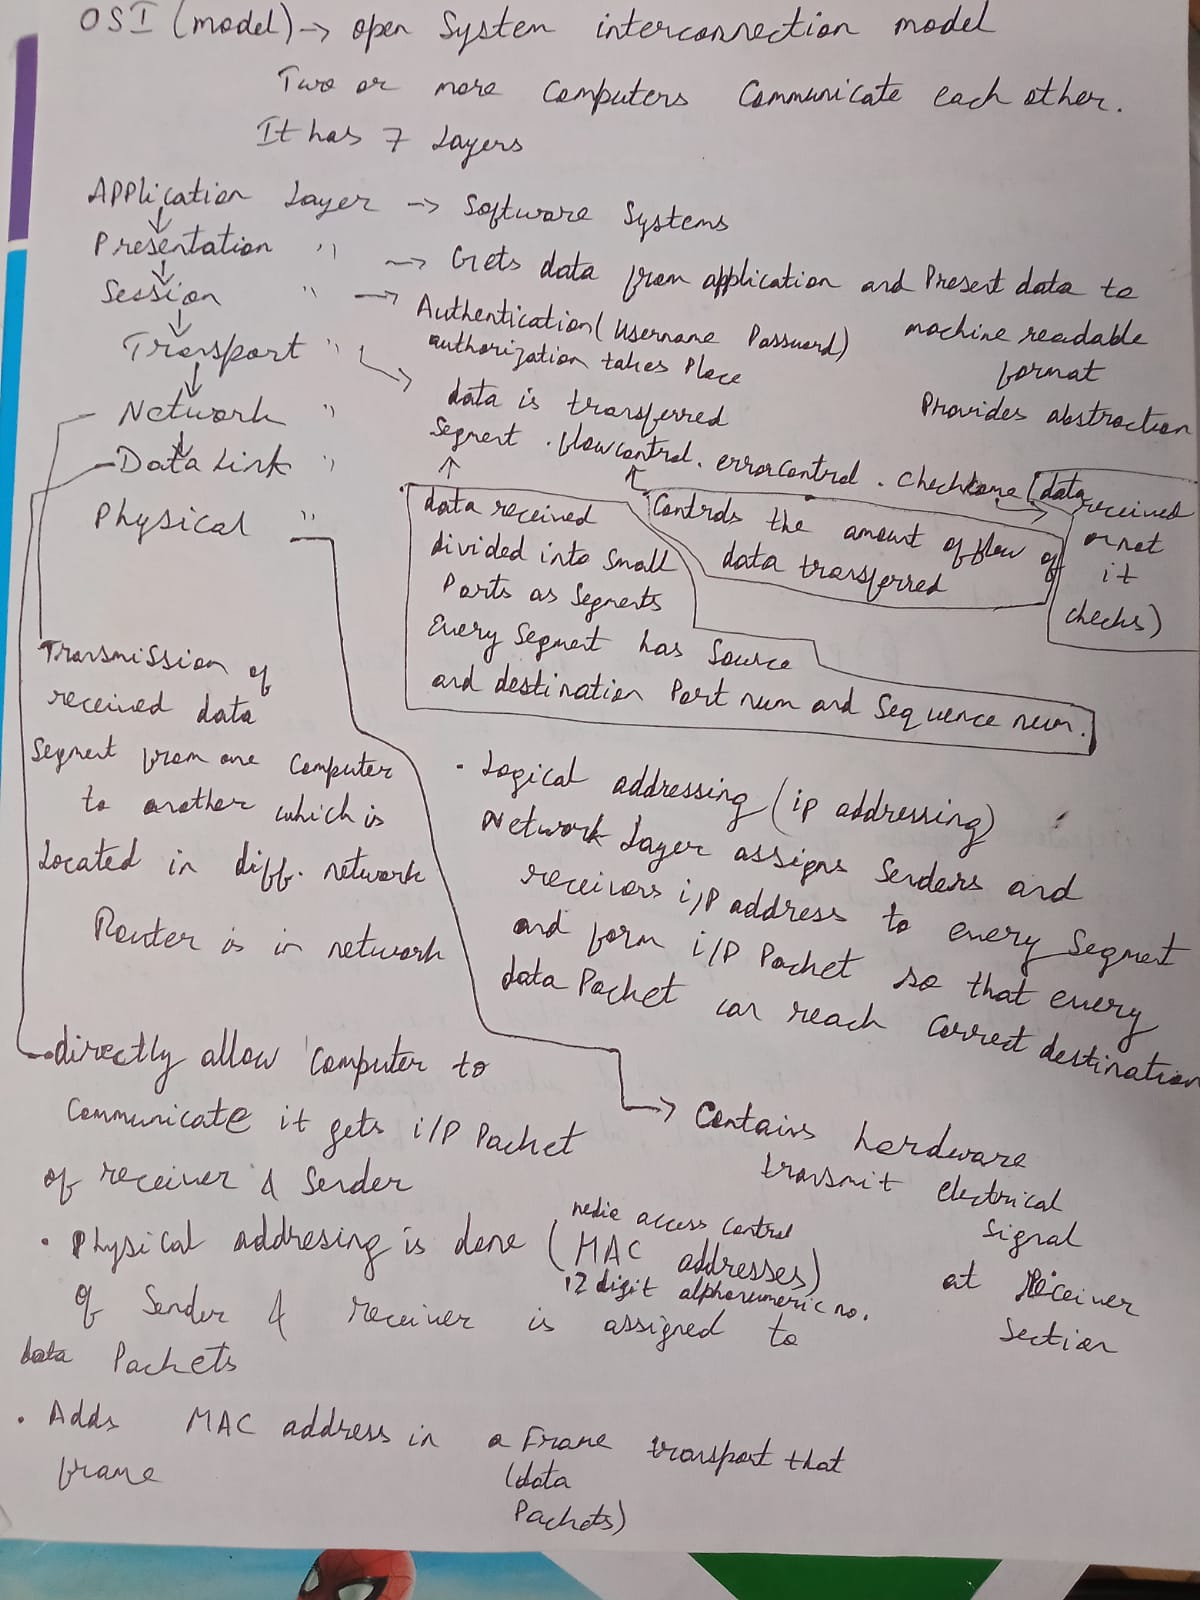 OSI (model) → open System interconnection model
Two or more computers communicate each other.
It has 7 Layers
Application Layer → Software Systems
Presentation " → Gets data from application and Present data to
machine readable
format
Provides abstraction
Session " → Authentication (Username Password)
authorization takes Place
Transport " → data is transferred
Segment . flowcontrol . errorcontrol . Checksome (data received
or not
it
checks)
Network "
Data Link "
Physical "
data received
divided into small
Parts as Segments
Every Segment has Source
and destination Port num and Sequence num.
Controls the amount of flow of
data transferred
Transmission of
received data
Segment from one Computer
to another which is
Located in diff. network
Router is in network
· Logical addressing (ip addressing)
Network Layer assigns Senders and
receivers i/p address to every Segment
and form i/P Packet so that every
data Packet can reach correct destination
· directly allow Computer to
Communicate it gets i/P Packet
of receiver & Sender
· Physical addresing is done (MAC addresses)
media access control
12 digit alphanumeric no.
of Sender & receiver is assigned to
data Packets
· Adds MAC address in a Frame transport that
frame
(data
Packets)
→ Contains hardware
transmit electrical
signal
at Receiver
Section